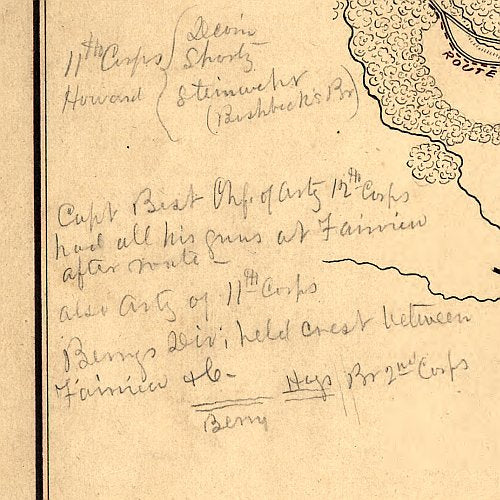 11th Corps
Howard
Devin
Shortz
Steinwehr
(Bushbeck's Br)
ROUTE
Capt Best Chf. of Arty 12th Corps
had all his guns at Fairview
after route –
also Arty of 11th Corps
Berrys Div; held crest between
Fairview & C–
Berry
Hays Br 2nd Corps